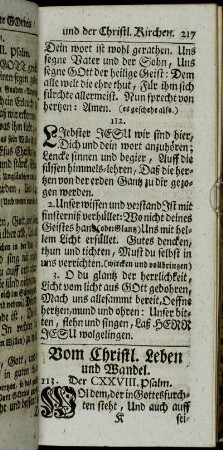 und der Christl. Kirchen. 217
Dein wort ist wohl gerathen. Uns
segne Vater und der Sohn, Uns
segne GOtt der heilige Geist: Dem
alle welt die ehre thut, Für ihm sich
fürchte allermeist. Nun sprecht von
hertzen: Amen. (es geschehe also.)
112.
Liebster JESU wir sind hier,
Dich und dein wort anzuhören;
Lencke sinnen und begier, Auff die
süssen himmels-lehren, Daß die her-
tzen von der erden Gantz zu dir gezo-
gen werden.
2. Unser wissen und verstand Ist mit
finsterniß verhüllet: Wo nicht deines
Geistes hand (oder: Glantz) Uns mit hel-
lem Licht erfüllet. Gutes dencken,
thun und verrichten, Must du selbst in
uns verrichten. (wircken und vollbringen)
3. O du glantz der herrlichkeit,
Licht vom licht aus GOtt gebohren,
Mach uns allesammt bereit, Oeffne
hertzen, mund und ohren: Unser bit-
ten, flehn und singen, Laß HERR
JESU wolgelingen.
Vom Christl. Leben
und Wandel.
113. Der CXXVIII. Psalm.
WOl dem, der in Gottes furch-
ten steht, Und auch auff
K sei-
II. Psalm.